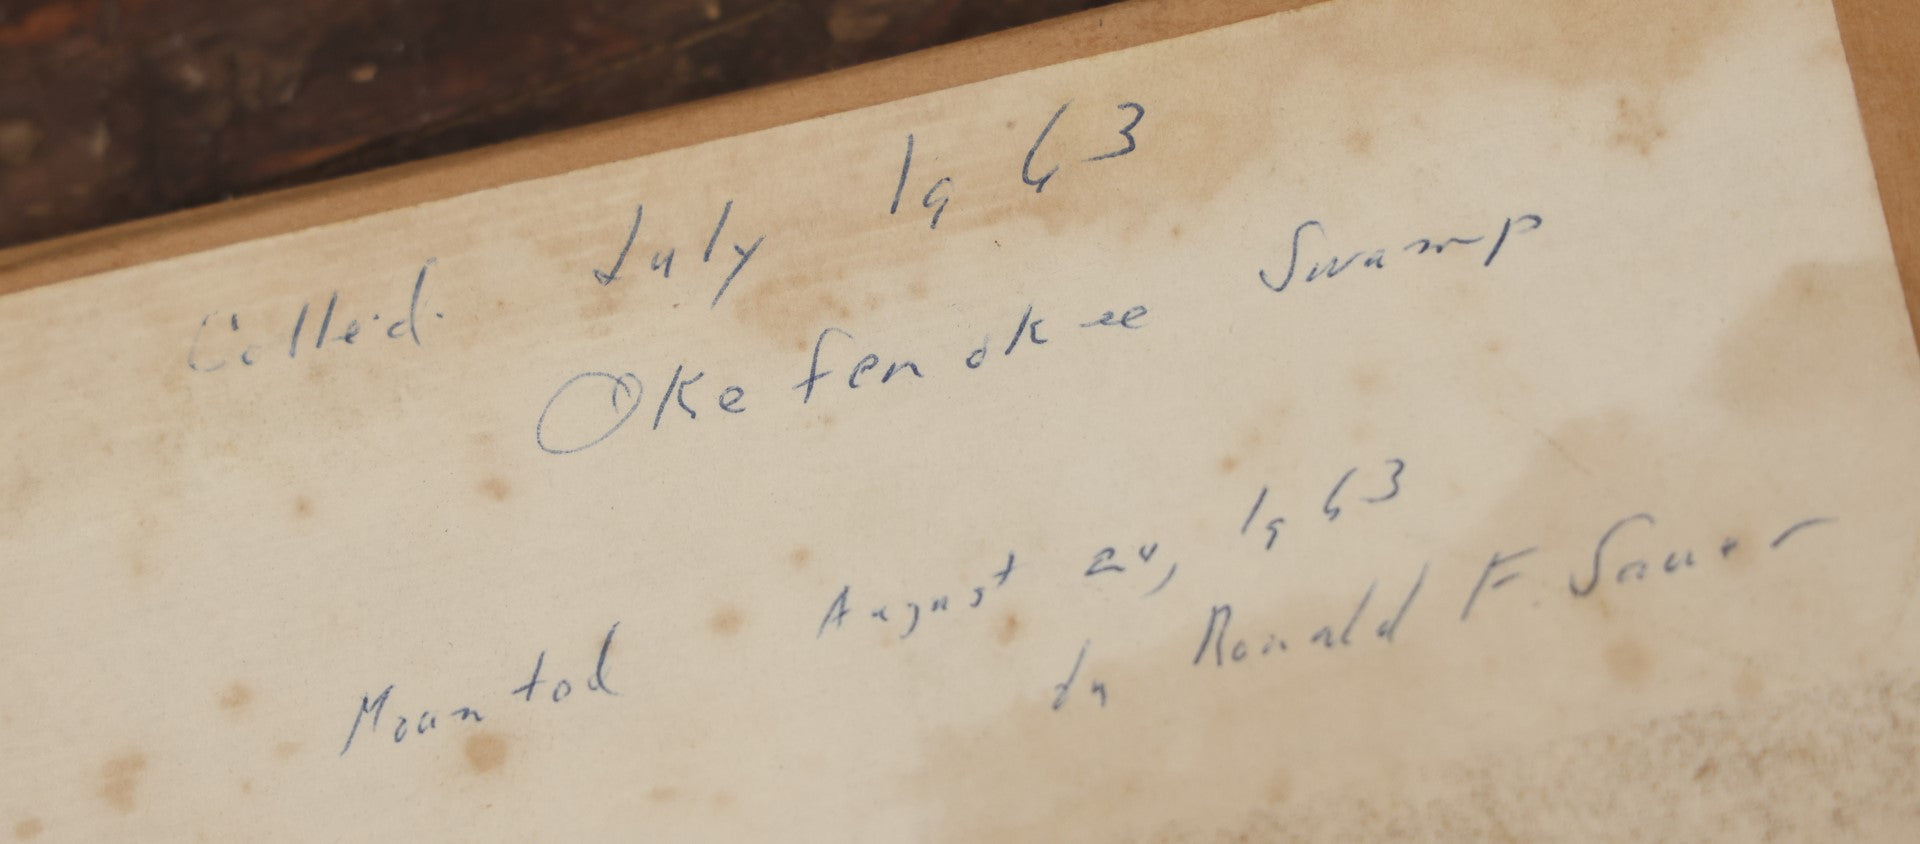 Colle'd. July 1963
Okefenokee Swamp
Mounted August 24, 1963
by Ronald F Sauer